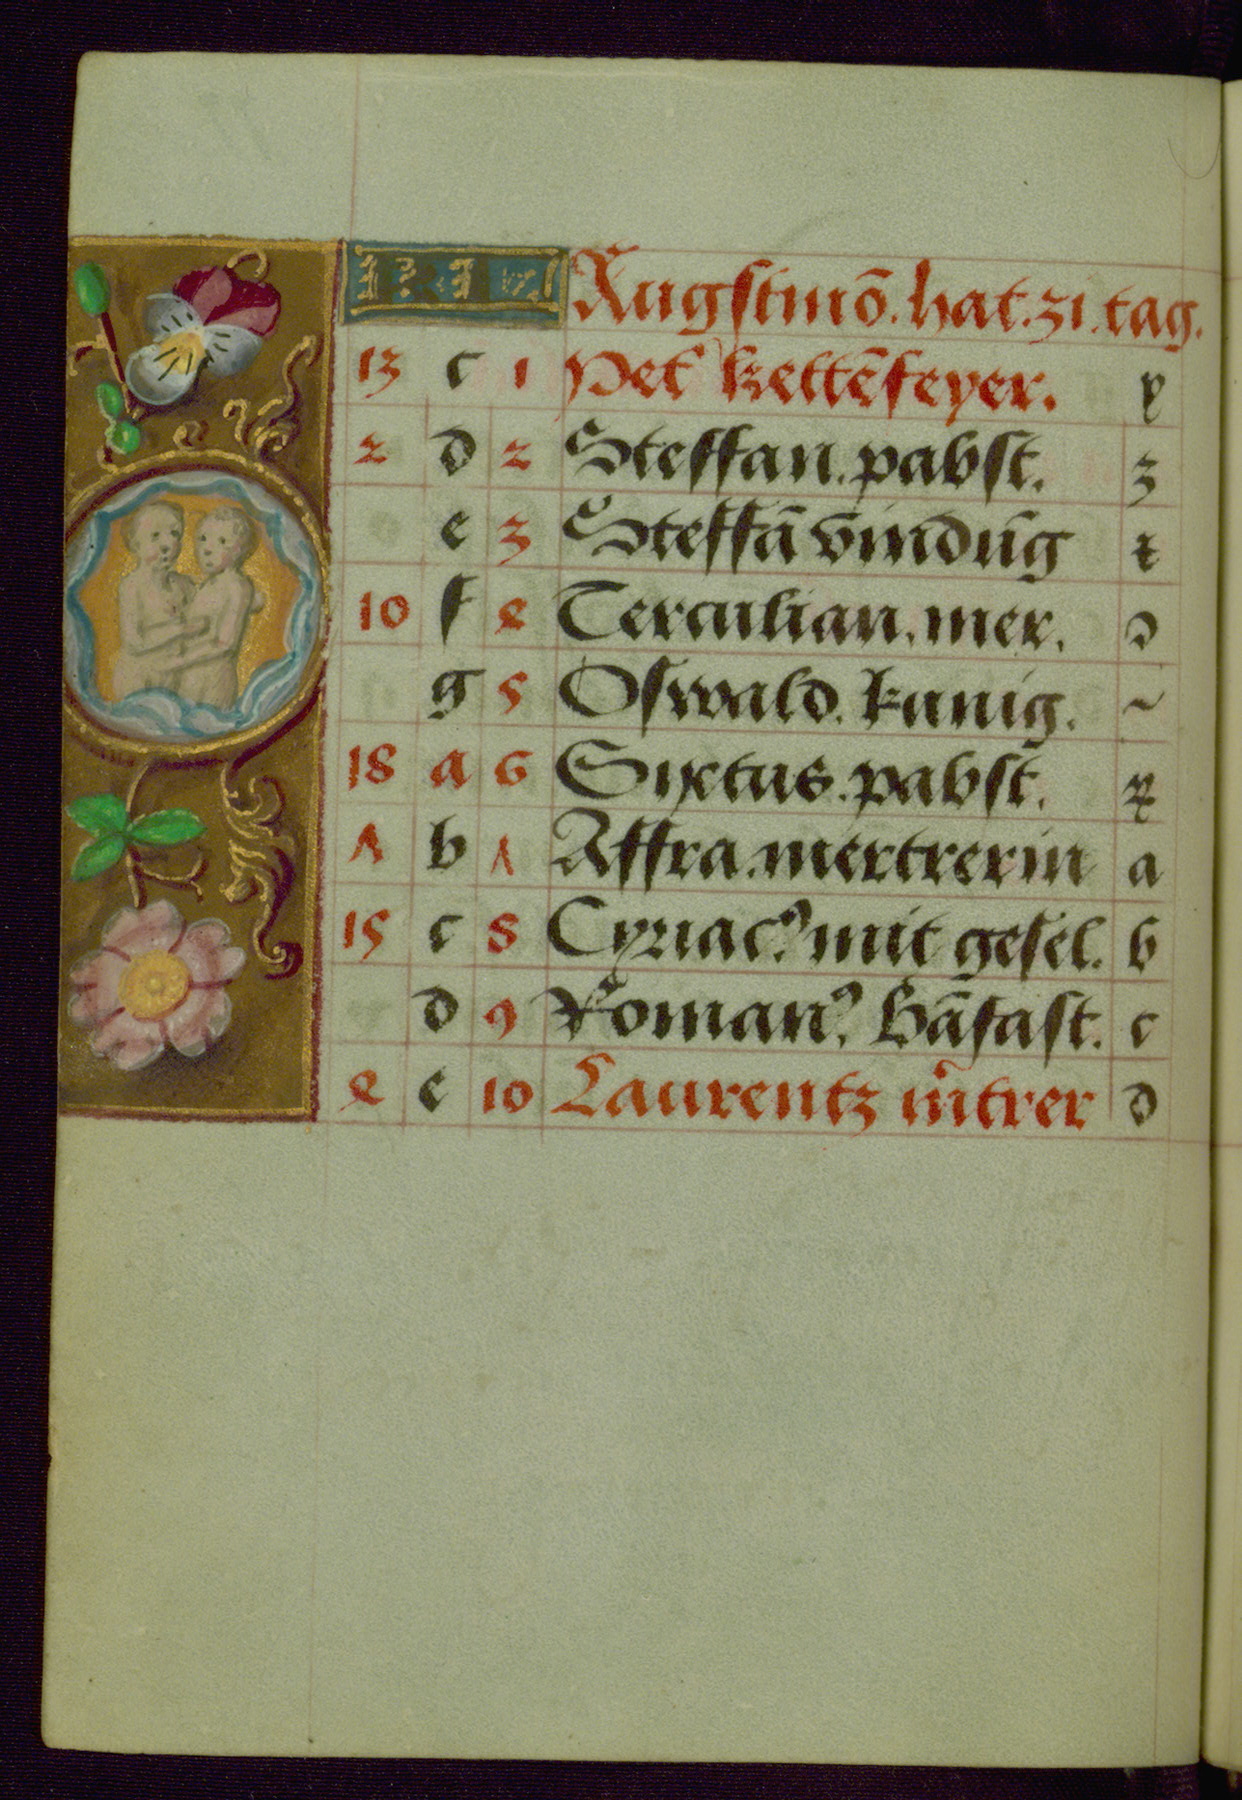 Augstmō. hat. 31. tag.
13 c 1 Pet' kettēfeyer. y
2 d 2 Steffan. pabst. z
e 3 Steffā vindūg
10 f 4 Terculian. mer.
g 5 Oswald. kunig. ~
18 a 6 Sixtus. pabst.
7 b 7 Affra. mertrerin a
15 c 8 Cyriac⁹ mit gesel. b
d 9 Roman⁹. Bāfast. c
4 e 10 Laurentz m̄trer d